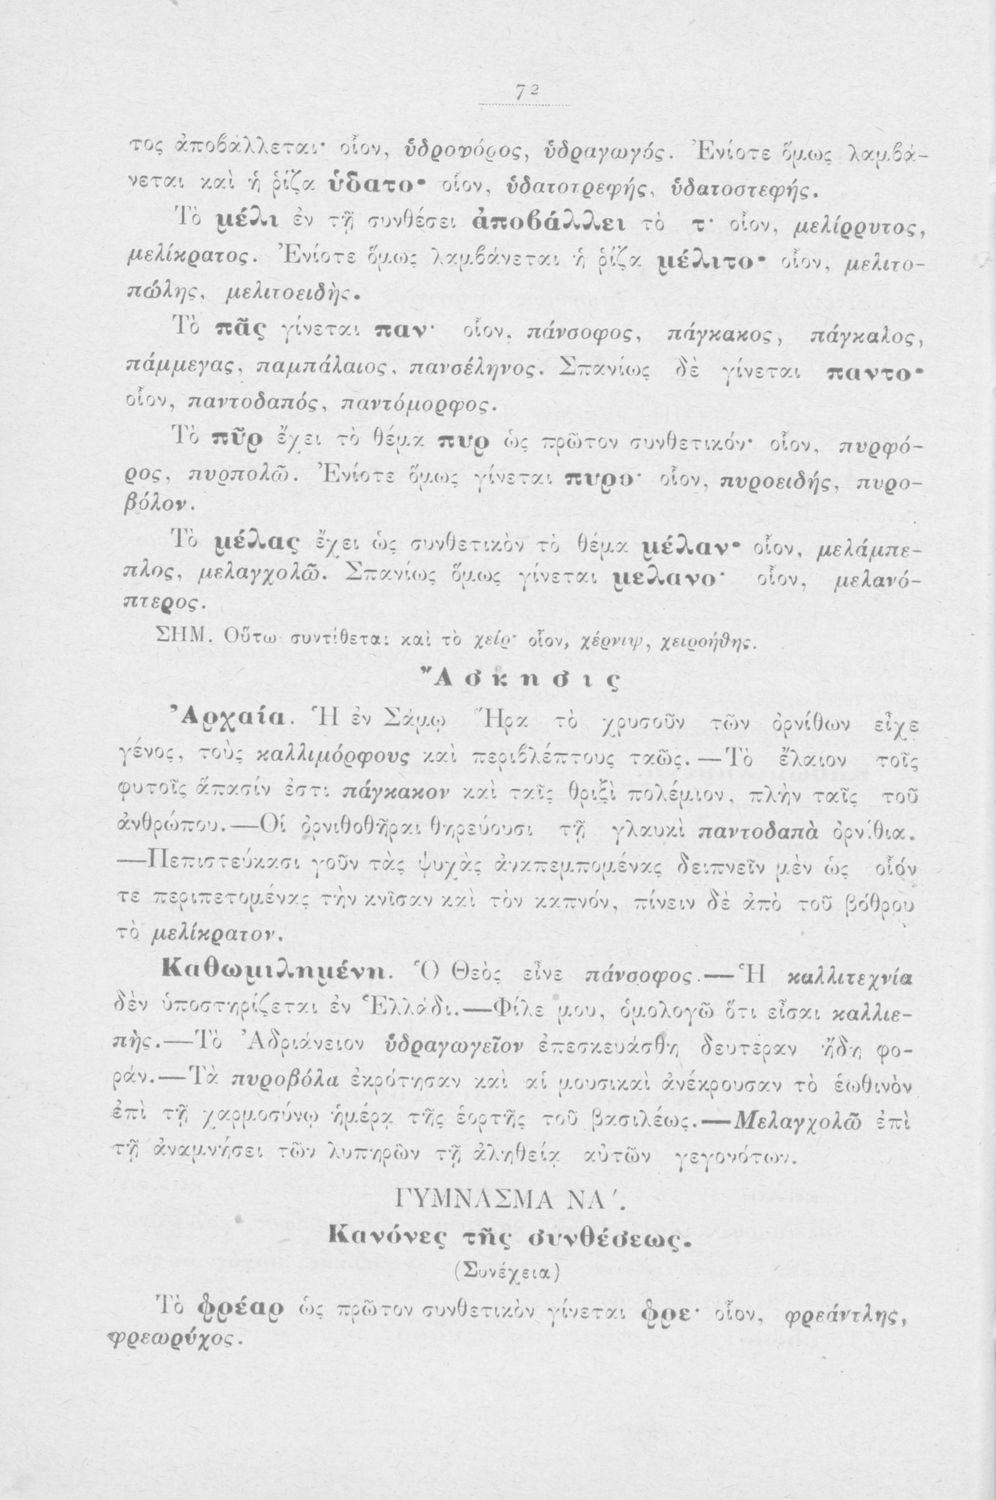 72
τος ἀποβάλλεται· οἷον, ὑδροφόρος, ὑδραγωγός. Ἐνίοτε ὅμως λαμβά-
νεται καὶ ἡ ῥίζα ὑδατο· οἷον, ὑδατοτρεφής, ὑδατοστεφής.
Τὸ μέλι ἐν τῇ συνθέσει ἀποβάλλει τὸ τ· οἷον, μελίρρυτος,
μελίκρατος. Ἐνίοτε ὅμως λαμβάνεται ἡ ῥίζα μέλιτο· οἷον, μελιτο-
πώλης, μελιτοειδὴς.
Τὸ πᾶς γίνεται παν· οἷον, πάνσοφος, πάγκακος, πάγκαλος,
πάμμεγας, παμπάλαιος, πανσέληνος. Σπανίως δὲ γίνεται παντο·
οἷον, παντοδαπός, παντόμορφος.
Τὸ πῦρ ἔχει τὸ θέμα πυρ ὡς πρῶτον συνθετικόν· οἷον, πυρφό-
ρος, πυρπολῶ. Ἐνίοτε ὅμως γίνεται πυρο· οἷον, πυροειδής, πυρο-
βόλον.
Τὸ μέλας ἔχει ὡς συνθετικὸν τὸ θέμα μέλαν· οἷον, μελάμπε-
πλος, μελαγχολῶ. Σπανίως ὅμως γίνεται μελανο· οἷον, μελανό-
πτερος.
ΣΗΜ. Οὕτω συντίθεται καὶ τὸ χείρ· οἷον, χέρνιψ, χειροήθης.
Ἄσκησις
Ἀρχαία. Ἡ ἐν Σάμῳ Ἥρα τὸ χρυσοῦν τῶν ὀρνίθων εἶχε
γένος, τοὺς καλλιμόρφους καὶ περιβλέπτους ταῶς.—Τὸ ἔλαιον τοῖς
φυτοῖς ἅπασίν ἐστι πάγκακον καὶ ταῖς θριξὶ πολέμιον, πλὴν ταῖς τοῦ
ἀνθρώπου.—Οἱ ὀρνιθοθῆραι θηρεύουσι τῇ γλαυκὶ παντοδαπὰ ὀρνίθια.
—Πεπιστεύκασι γοῦν τὰς ψυχὰς ἀναπεμπομένας δειπνεῖν μὲν ὡς οἷόν
τε περιπετομένας τὴν κνῖσαν καὶ τὸν καπνόν, πίνειν δὲ ἀπὸ τοῦ βόθρου
τὸ μελίκρατον.
Καθωμιλημένη. Ὁ Θεὸς εἶνε πάνσοφος.—Ἡ καλλιτεχνία
δὲν ὑποστηρίζεται ἐν Ἑλλάδι.—Φίλε μου, ὁμολογῶ ὅτι εἶσαι καλλιε-
πὴς.—Τὸ Ἀδριάνειον ὑδραγωγεῖον ἐπεσκευάσθη δευτέραν ἤδη φο-
ράν.—Τὰ πυροβόλα ἐκρότησαν καὶ αἱ μουσικαὶ ἀνέκρουσαν τὸ ἑωθινὸν
ἐπὶ τῇ χαρμοσύνῳ ἡμέρᾳ τῆς ἑορτῆς τοῦ βασιλέως.—Μελαγχολῶ ἐπὶ
τῇ ἀναμνήσει τῶν λυπηρῶν τῇ ἀληθείᾳ αὐτῶν γεγονότων.
ΓΥΜΝΑΣΜΑ ΝΑʹ.
Κανόνες τῆς συνθέσεως.
(Συνέχεια)
Τὸ φρέαρ ὡς πρῶτον συνθετικὸν γίνεται φρε· οἷον, φρεάντλης,
φρεωρύχος.